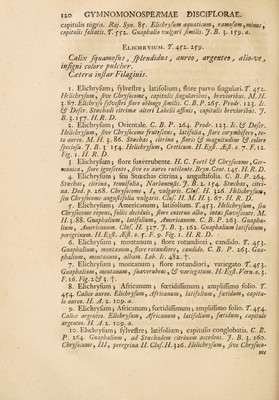 120 GYMNOMONOSPERMÆ DISCIFLORÆ.
capitulis nigris. Raj. Syn. 85. Elichrysum aquaticum, ramosum, minus,
capitulis foliatis. T. 452. Gnaphalio vulgari similis. J. B. 3. 159. a.
ELICHRYSUM. T. 452. 259.
Calix squamosus, splendidus, aureo, argenteo, alio-ve,
insigni colore pulcher.
Cætera instar Filaginis.
1. Elichrysum; sylvestre; latifolium; flore parvo singulari. T. 452.
Helichrysum, sive Chrysocome, capitulis singularibus, brevioribus. M. H.
3. 87. Elichryso sylvestri flore oblongo similis. C. B. P. 265. Prodr. 123. Ic.
& Descr. Stœchadi citrinæ alteri Lobelii affinis, capitulis brevioribus. J.
B. 3. 157. H. R. D.
2. Elichrysum; Orientale. C. B. P. 264. Prodr. 123. Ic. & Descr.
Helichrysum, sive Chrysocome frutescens, latifolia, flore corymbifero, to-
to aureo. M. H. 3. 86. Stœchas, citrina, floris & magnitudine & colore
speciosa. J. B. 3. 154. Helichrysum, Creticum. H. Eyst. Æst. o. 7. F. 12.
Fig. 1. H. R. D.
3. Elichrysum; flore suaverubente. H. C. Forte & Chrysocome, Ger-
manica, flore ignescente, sive ex aureo rutilante. Breyn. Cent. 146. H. R. D.
4. Elichrysum; seu Stœchas citrina, angustifolia. C. B. P. 264.
Stœchas, citrina, tenuifolia, Narbonensis. J. B. 3. 154. Stœchas, citri-
na. Dod p. 268. Chrysocome, I, vulgaris. Clus. H. 326. Helichrysum,
seu Chrysocome angustifolia vulgaris. Clus. H. M. H. 3. 87. H. R. D.
5. Elichrysum; Americanum; latifolium. T. 453. Helichrysum, seu
Chrysocome repens, foliis decidois, flore exterus albo, intus flavescente. M.
H. 3. 88. Gnaphalium, latifolium, Americanum. C. B. P. 263. Gnapha-
lium, Americanum. Clus. H. 327. J. B. 3. 162. Gnaphalium latifolium,
peregrinum. H. Eyst. Æst. o. 5. F. 9. Fig. 1. H. R. D.
6. Elichrysum; montanum; flore rotundiori; candido. T. 453.
Gnaphalium, montanum, flore rotundiore, candido. C. B. P. 263. Gna-
phalium, montanum, album. Lob. Ic. 482. †.
7. Elichrysum; montanum; flore rotundiori; variegato. T. 453.
Gnaphalium, montanum, suaverubens, & variegatum. H. Eyst. Vern. o. 3.
F. 16. Fig. 2 & 3. †.
8. Elichrysum; Africanum; fœtidissimum; amplissimo folio. T.
454. Calice aureo. Elichrysum, Africanum, latifolium, fœtidum, capitu-
lo aureo. H. A. 2. 109. a.
9. Elichrysum; Africanum; fœtidissimum; amplissimo folio. T. 454.
Calice argenteo. Elichrysum, Africanum, latifolium, fœtidum, capitulo
argenteo. H. A. 2. 109. a.
10. Elichrysum; sylvestre; latifolium; capitulis conglobatis. C. B.
P. 264. Gnaphalium, ad Stœchadem citrinam accedens. J. B. 3. 160.
Chrysocome, III, peregrina H. Clus. H. 326. Helichrysum, sive Chrysoco-
me